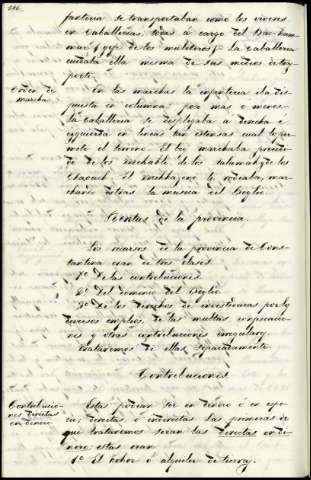 fanteria se transportaban como los viveres
en caballerias, todas á cargo del Bach-ham-
mar (gefe de los muleteros) — La caballeria
cuidaba ella misma de sus medios de tras-
porte.
Orden de
marcha
En las marchas la infanteria iba dis-
puesta en columna por mas o menos
la caballeria se desplegaba á derecha e
izquierda en lineas tan estensas cual lo per-
mite el terreno. El bey marchaba precedi-
do de los
le rodeaba, mar-
chando detras la musica del Beylic
Rentas de la provincia
Los recursos de la provincia de Cons-
tantina eran de tres clases
1º De las contribuciones
2º Del dominio del Beylic
3º De los derechos de investiduras por los
diversos empleos, de las multas, confiscacio-
nes y otras contribuciones irregulares
trataremos de ellas separadamente.
Contribuciones
Contribucio-
nes directas
en dinero
Estas podian ser en dinero ó en espe-
cie; directas, ó indirectas. Las primeras de
que trataremos seran las directas en di-
nero: estas eran
1º El hokor ó alquiler de tierras